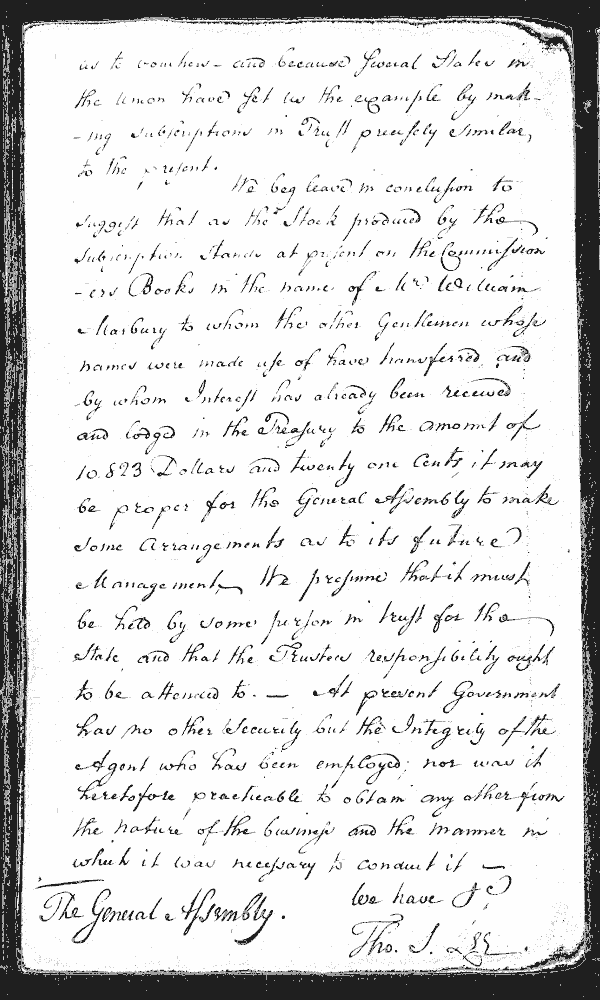 as to vouchers - and because several States in
the Union have set us the example by mak-
-ing subscriptions in Trust precisely similar,
to the present.
We beg leave in conclusion to
suggest that as the Stock produced by the
subscription stands at present on the Commission
-ers Books in the name of Mr. William
Marbury to whom the other Gentlemen whose
names were made use of have transferred, and
by whom Interest has already been received
and lodged in the Treasury to the amount of
10.823 Dollars and twenty one Cents, it may
be proper for the General Assembly to make
some Arrangements as to its future
Management, We presume that it must
be held by some person in trust for the
State, and that the Trustees responsibility ought
to be attended to. — At present Government
has no other Security but the Integrity of the
Agent who has been employed; nor was it
heretofore practicable to obtain any other from
the nature of the business and the manner in
which it was necessary to conduct it —
We have &c
The General Assembly.
Tho. S. Lee.